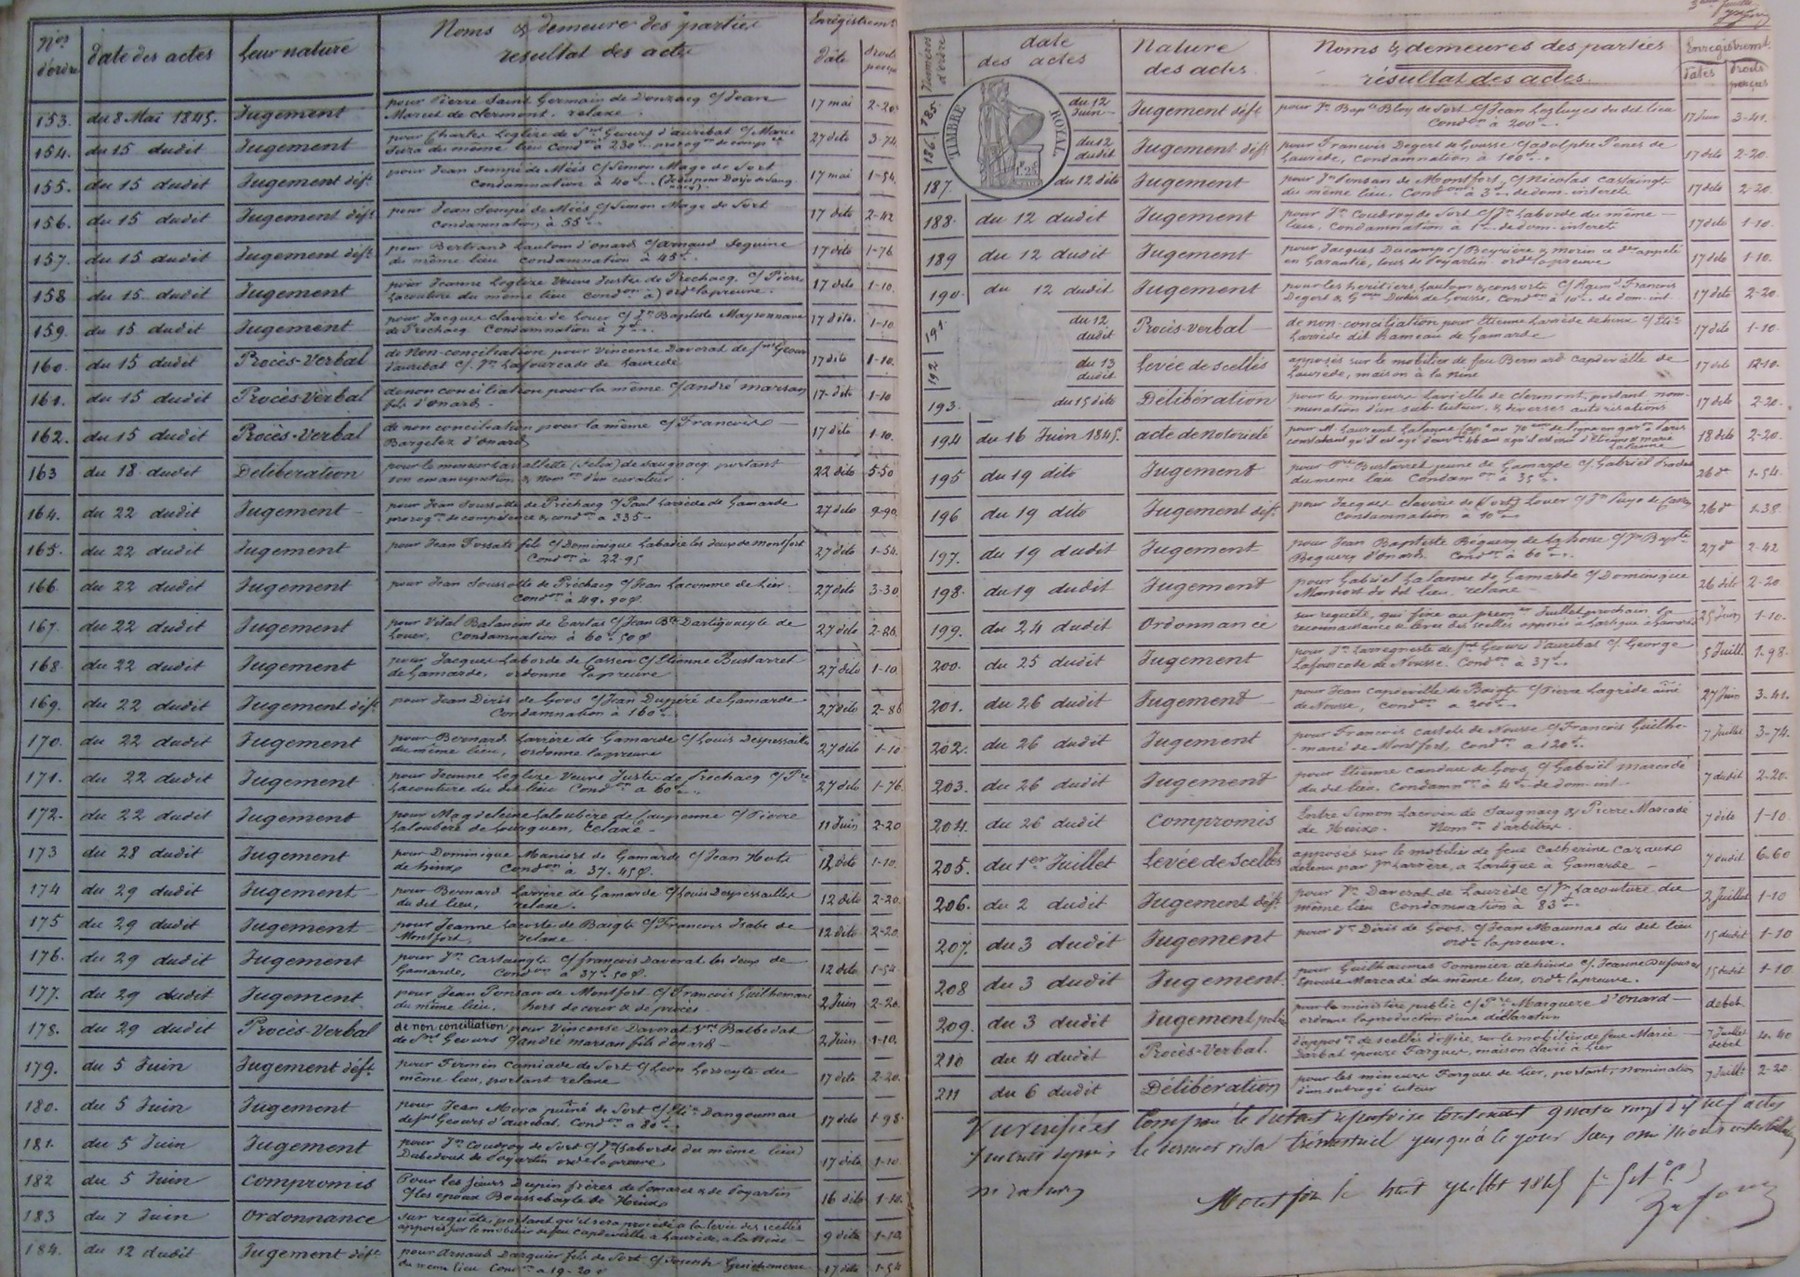 Nos d'ordre
date des actes
leur nature
Noms & demeure des parties
résultat des actes
Enregistremt
date
droits perçus
153. du 8 Mai 1845. Jugement pour Pierre Saint Germain de Donzacq c/ Jean 17 mai 2-20
Marcet de clermont, relaxe.
154. du 15 dudit Jugement pour Charles Loglère de St Geours d'auribat c/ Marie 27 dito 3-74
du même lieu Condon à 230
155. du 15 dudit Jugement déft pour Jean Sempé de Mées c/ Simon Mage de Sort 17 mai 1-54
Condamnation à 40
156. du 15 dudit Jugement déft pour Jean Sempé de Mées c/ Simon Mage de Sort 17 dito 2-42
Condamnation à 55
157. du 15 dudit Jugement déft pour Bertrand Lautom d'onard c/ Arnaud Seguine 17 dito 1-76
du même lieu condamnation à 45
158 du 15 dudit Jugement pour Jeanne Loglère Veuve Juste de Préchacq c/ Pierre 17 dito 1-10
Lacouture du même lieu ordne la preuve.
159. du 15 dudit Jugement pour Jacques claverie de Louer c/ Jn Baptiste Mayronnave 17 dito. 1-10
de Préchacq Condamnation à 7
160. du 15 dudit Procès-Verbal de Non-conciliation pour Vincente Daverat de St Geours 17 dito 1-10.
d'auribat c/ Jn Lafourcade de Laurède
161. du 15 dudit Procès-Verbal de non conciliation pour la même c/ andré marsan 17 dito 1-10
fils d'Onard
162. du 15 dudit Procès-Verbal de non conciliation pour la même c/ François 17 dito 1-10.
Bargelez d'onard
163 du 18 dudit Délibération pour le mineur Lavallette (Felix) de Saugnacq portant 22 dito 5-50
son émancipation & nomon d'un curateur
164. du 22 dudit Jugement pour Jean Soussotte de Préchacq c/ Paul Larrède de Gamarde 27 dito 9-90
prorogon de compétence & condon à 335
165. du 22 dudit Jugement pour Jean Fossats fils c/ Dominique Labadie les deux de Montfort 27 dito 1-54.
Condon à 22 95
166 du 22 dudit Jugement pour Jean Soussotte de Préchacq c/ Jean Lacomme de Lier 27 dito 3-30
Condon à 49. 90
167. du 22 dudit Jugement pour Vital Balancin de Tartas c/ Jean Bte Dartiguelongue de 27 dito
Louer, Condamnation à 60 50
168 du 22 dudit Jugement pour Jacques Laborde de Cassen c/ Etienne Bustarret 27 dito 1-10
de Gamarde, ordonne la preuve
169. du 22 dudit Jugement déft pour Jean Diris de Goos c/ Jean Dupéré de Gamarde 27 dito 2-86
Condamnation à 160
170. du 22 dudit Jugement pour Bernard Larrère de Gamarde c/ Louis Despessailles 27 dito 1-10
du même lieu, ordonne la preuve
171. du 22 dudit Jugement pour Jeanne Loglère Veuve Juste de Préchacq c/ Pre 27 dito 1-76
Lacouture du dit lieu Condon à 60
172. du 22 dudit Jugement pour Magdeleine Laloubère de Caupenne c/ Pierre 11 Juin 2-20
Laloubère de Lourquen, relaxe
173 du 28 dudit Jugement pour Dominique Maniort de Gamarde c/ Jean Hots 12 dito 1-10.
de hinx Condon à 37. 45
174 du 29 dudit Jugement pour Bernard Larrère de Gamarde c/ Louis Despessailles 12 dito 2-20.
du dit lieu, relaxe.
175 du 29 dudit Jugement pour Jeanne Lacoste de Baigts c/ François Isabe de 12 dito 2-20
Montfort, relaxe
176. du 29 dudit Jugement pour Jn Castaingts c/ françois Daverat les deux de 12 dito 1-54
Gamarde, Condon à 37 50
177. du 29 dudit Jugement pour Jean Ponsan de Montfort c/ François Guilhemane 2 Juin 2-20
du même lieu, hors de cour & de procès
178. du 29 dudit Procès-Verbal de non conciliation pour Vincente Daverat Vve Balbedat 2 Juin 1-10.
de St Geours c/ andré marsan fils d'onard
179. du 5 Juin Jugement déft pour Firmin Camiade de Sort c/ Léon Lesseyte du 17 dito 2-20.
même lieu, portant relaxe
180. du 5 Juin Jugement pour Jean Mora puîné de Sort c/ Dangoumau 17 dito 1-98
de St Geours d'auribat. Condon à 80
181. du 5 Juin Jugement pour Jn Coudroy de Sort c/ Jn (Laborde du même lieu) 17 dito 1-10
Dubedout de Poyartin ordne la preuve
182 du 5 Juin Compromis Pour les sieurs Dupin frères de Pomarez & de Poyartin 16 dito 1-10.
c/ les époux Boussebayle de Hinx
183 du 7 Juin Ordonnance sur requête, portant qu'il sera procédé à la levée des scellés 9 dito 1-10.
apposés sur le mobilier de feu Capdevielle à Laurède, à la Nine
184. du 12 dudit Jugement déft pour Arnaud Darquier fils de Sort c/ Joseph 17 dito 1-54
du même lieu Condon à 19-20
Numéros d'ordre
date des actes
Nature des actes
Noms & demeures des parties
résultat des actes.
Enregistremt
dates
droits perçus
TIMBRE ROYAL
1F 25C
185. du 12 Juin Jugement déft pour Jn Bapte Bloy de Sort c/ Jean Lesluyes du dit lieu 17 Juin 3-41.
Condon à 200
186. du 12 dudit Jugement déft pour François Degert de Gousse c/ adolphe Pènes de 17 dito 2-20.
Laurède, Condamnation à 100
187. du 12 dito Jugement pour Jn Ponsan de Montfort c/ Nicolas Castaingts 17 dito 2-20.
du même lieu. Condon à 3 de dom. intérêts
188. du 12 dudit Jugement pour Jn Coudroy de Sort c/ Jn Laborde du même 17 dito 1-10.
lieu, Condamnation à 1 de dom-intérêts
189 du 12 dudit Jugement pour Jacques Ducamp c/ Beyrière & Morin ce der appelé 17 dito 1-10.
en Garantie, tous de Poyartin ordne la preuve
190. du 12 dudit Jugement pour les héritiers Lautom & consorts c/ François 17 dito 2-20
Degert & Gme Dulès de Gousse, Condon à 10 de dom. int.
191. du 12 dudit Procès-verbal de non-conciliation pour Etienne Larrède de hinx c/ 17 dito 1-10.
Larrède dit hameau de Gamarde
192 du 13 dudit Levée de scellés apposés sur le mobilier de feu Bernard Capdevielle de 17 dito 12-10.
Laurède, maison à la Nine
193. du 15 dito Délibération pour les mineurs Lavielle de Clermont, portant nom- 17 dito 2-20.
-mination d'un sub. tuteur & diverses autorisations
194 du 16 Juin 1845. acte de notoriété pour M. Laurent Lalanne au 70me de ligne en garn à Paris 18 dito 2-20.
constatant qu'il est agé d'environ 26 ans & qu'il est né d'Etienne & marie
Lalanne
195 du 19 dito Jugement pour Pre Bustarret jeune de Gamarde c/ Gabriel 26 do 1-54.
du même lieu Condamon à 35
196 du 19 dito Jugement déft pour Jacques claverie de Louer c/ Jn Puyo de Cassen 26 do 1-38
Condamnation à 10
197. du 19 dudit Jugement pour Jean Baptiste Béguery de Lahosse c/ Jn Bapte 27 do 2-42
Beguery d'onard. Condon à 60
198. du 19 dudit Jugement pour Gabriel Lalanne de Gamarde c/ Dominique 26 dito 2-20
Maniort du dit lieu. relaxe
199. du 24 dudit Ordonnance sur requête, qui fixe au premier Juillet prochain la 25 Juin 1-10.
reconnaissance & levée des scellés apposés à Lartigue à Gamarde
200. du 25 dudit Jugement pour Jn Larregneste de St Geours d'auribat c/ George 5 Juill. 1-98
Lafourcade de Nousse. Condon à 37
201. du 26 dudit Jugement pour Jean Capdeville de Baigts c/ Pierre Lagrède ainé 27 Juin 3-41.
de Nousse, Condon à 200
202. du 26 dudit Jugement pour François Castets de Nousse c/ François Guilhe- 7 Juillet 3-74.
-mané de Montfort, Condon à 120
203. du 26 dudit Jugement pour Etienne Candau de Goos, c/ Gabriel Marcadé 7 dudit 2-20.
du dit lieu. Condamnon à 4 de dom-int
204. du 26 dudit Compromis Entre Simon Lacroix de Saugnacq & Pierre Marcadé 7 dito 1-10.
de Hinx. Nomon d'arbitres.
205. du 1er Juillet Levée de Scellés apposés sur le mobilier de feue Catherine Cazaux 7 dudit 6-60
détenu par Jn Larrère, à Lartigue à Gamarde
206. du 2 dudit Jugement déft. pour Jn Daverat de Laurède c/ Jn Lacouture du 2 Juillet 1-10
même lieu Condamnation à 83
207. du 3 dudit Jugement pour Jn Diris de Goos c/ Jean Maumas du dit lieu 15 dudit 1-10
ordne la preuve.
208 du 3 dudit Jugement. pour Guilhaumes Pommier de hinx c/ Jeanne Dufourcs 15 dudit 1-10.
épouse Marcadé du même lieu, ordne la preuve.
209. du 3 dudit Jugement police pour le ministère public c/ Pre Marquere d'Onard débet.
ordonne la production d'une déclaration
210 du 4 dudit Procès-Verbal. d'apposon de scellés d'office, sur le mobilier de feue Marie 7 Juillet débet 4-40
Darbat épouse Farques, maison clavé à Lier
211 du 6 dudit Délibération pour les mineurs Farques de Lier, portant, nomination 7 Juillt 2-20
d'un subrogé tuteur
Vu vérifié et Comparé le présent répertoire contenant quatre vingt dix neuf actes
inscrits depuis le dernier visa trimestriel jusqu'à ce jour sans omissions
ni ratures
Montfort le huit juillet 1845